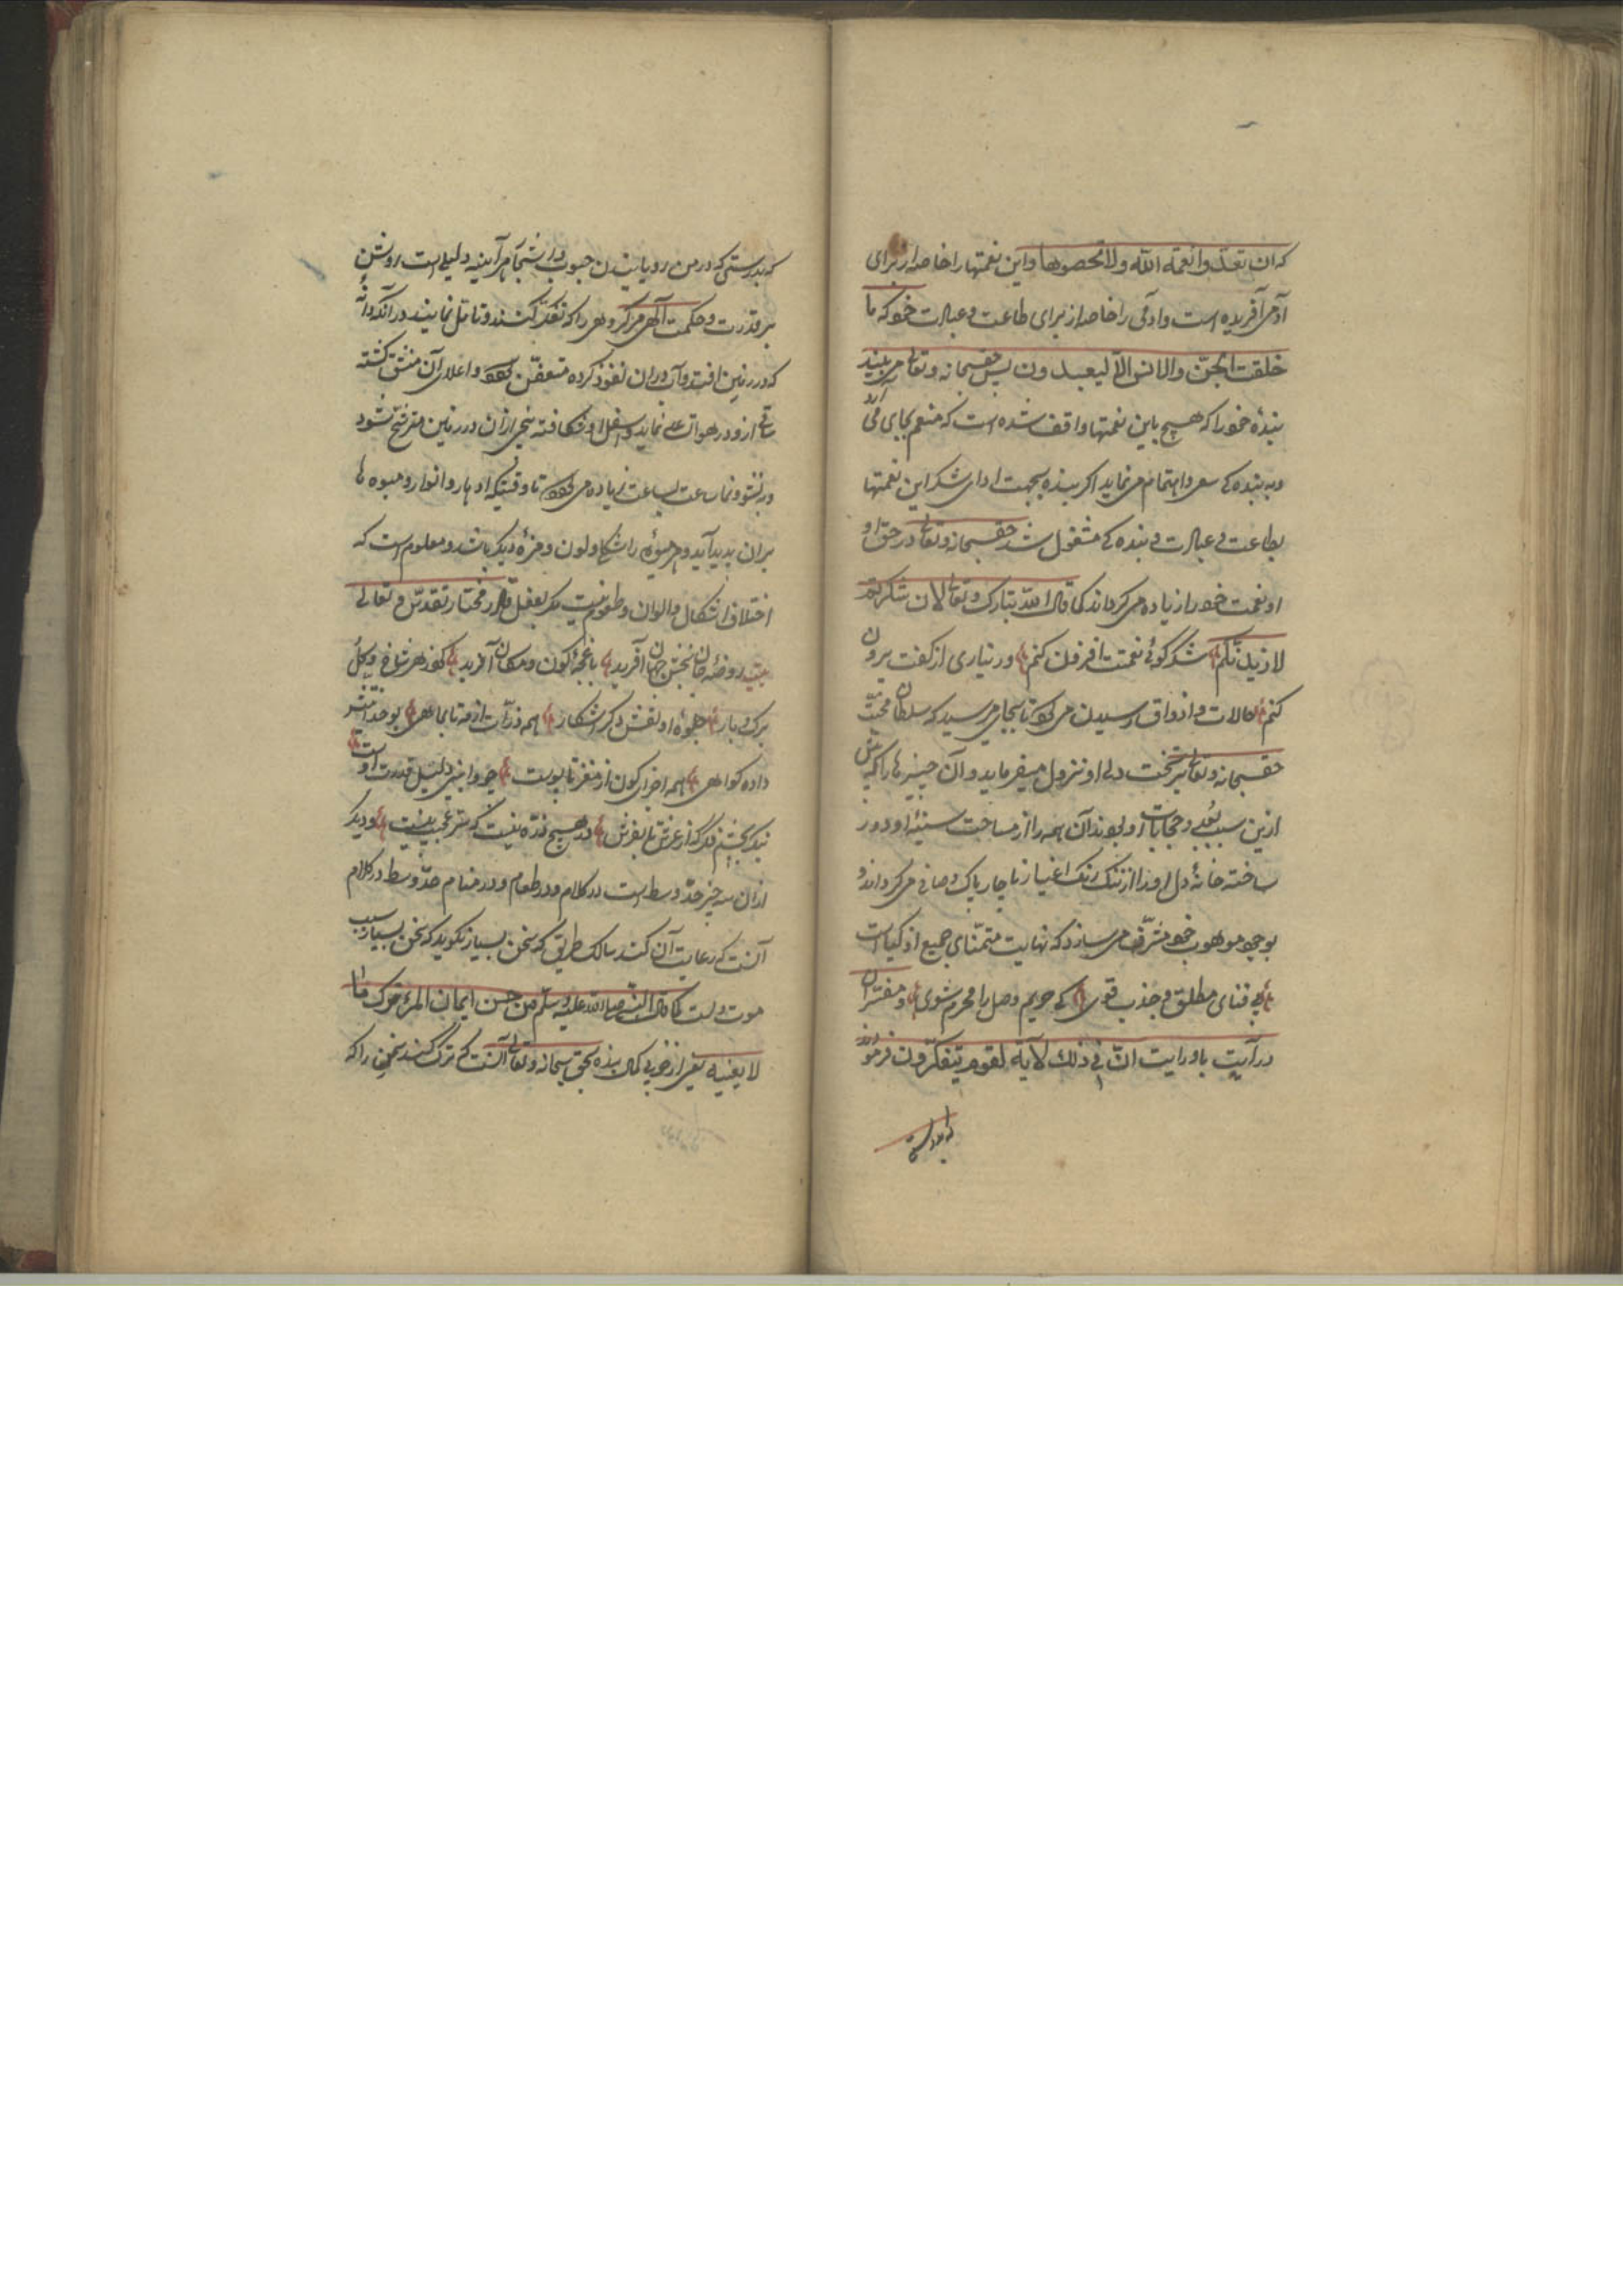 که ان تعدّوا نعمة الله ولا تحصوها و این نعمتها را خاصه از برای
آدمی آفریده است و آدمی را خاصه از برای طاعت و عبادت خود که ما
خلقت الجنّ والانس الّا لیعبدون پس حق سبحانه وتعالی می بیند
بندهٔ خود را که هیچ باین نعمتها واقف شده است که منعم بجای می آرد
و به بنده کی سعی و اهتمام می نماید اگر بنده بجهت ادای شکر این نعمتها
بطاعت و عبادت و بنده کی مشغول شد حق سبحانه وتعالی در حق او
او نعمت خود را زیاده می گرداند کما قال الله تبارک وتعالی لان شکرتم
لازیدنّکم شکر گوئی نعمتت افزون کنم ور نیاری از کفت بیرون
کنم حالات و اذواق رسیدن می تا بجایی میرسید که سلطان محبّت
حق سبحانه وتعالی بر تخت دل او نزول میفرماید و آن چیزها را که پیش
ازین سبب بُعد و حجابات او بودند آن همه را از مساحت سینهٔ او دور
ساخته خانهٔ دل او را از ننگ رنگ اغیار ناچار پاک و صافی می گرداند و
بوجود موهوب خود مشرّف می سازد که نهایت متمنّای جمیع اذکیا است
بی فنای مطلق و جذب قوی کی حریم وصل را محرم شوی و مفسّران
در آیت باورایت انّ فی ذلک لآیة لقوم یتفکّرون فرموده‌اند
که بدرستی
که بدرستی که در من رویانیدن حبوب و اشجار هر آیینه دلیلی است روشن
بر قدرت و حکمت الهی مر گروهی را که تفکّر کنند و تامّل نمایند در آنکه دانه
که در زمین افتد و آب در ان نفوذ کرده متعفّن و اعلای آن منشق گشته
ساقی ازو در هوا نماید و اسفل او شکافته بیخی ازان در زمین متفرّق شود
و در نشو و نما ساعت بساعت زیاده می تا وقتیکه ازهار و انوار و میوه ها
بران پدید آید و هر میوهٔ را شکل و لون و مزهٔ دیگر باشد و معلوم است که
اختلاف اشکال و الوان و طعوم نیست مگر بفعل قادر مختار تقدّس و تعالی
بیت روضهٔ جان بخش جهان آفرید باغچهٔ کون و مکان آفرید کرد ز هر شاخ و گل
برگ و بار جلوهٔ او نقش دگر آشکار همه ذرّات از مه تا بماهی بوحدانیتش
داده گواهی همه اجزای کون از مغز تا پوست چو وا بینی دلیل قدرت اوست
نبگر بچشم فکر که از عرش تا بفرش در هیچ ذرّه نیست که سرّ عجیب نیست و دیگر
ازان سه چیز حدّ وسط است در کلام و در طعام و در منام حدّ وسط در کلام
آنست که رعایت آن کند سالک طریق که سخن بسیار نگوید که سخن بسیار سبب
موت دلست کما قال النبی صلی الله علیه وسلم من حسن ایمان المرء ترک ما
لا یعنیه یعنی از خوبی بنده بحق سبحانه وتعالی آنست که ترک کند سخنی را که